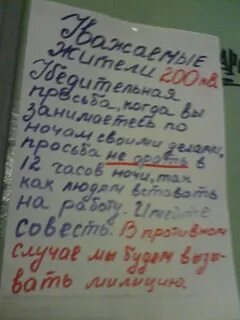 Уважаемые
жители 200 кв.
Убедительная
просьба, когда вы
занимаетесь по
ночам своими делами,
просьба не орать в
12 часов ночи, так
как людям вставать
на работу. Имейте
совесть. В противном
случае мы будем вызы-
вать милицию.